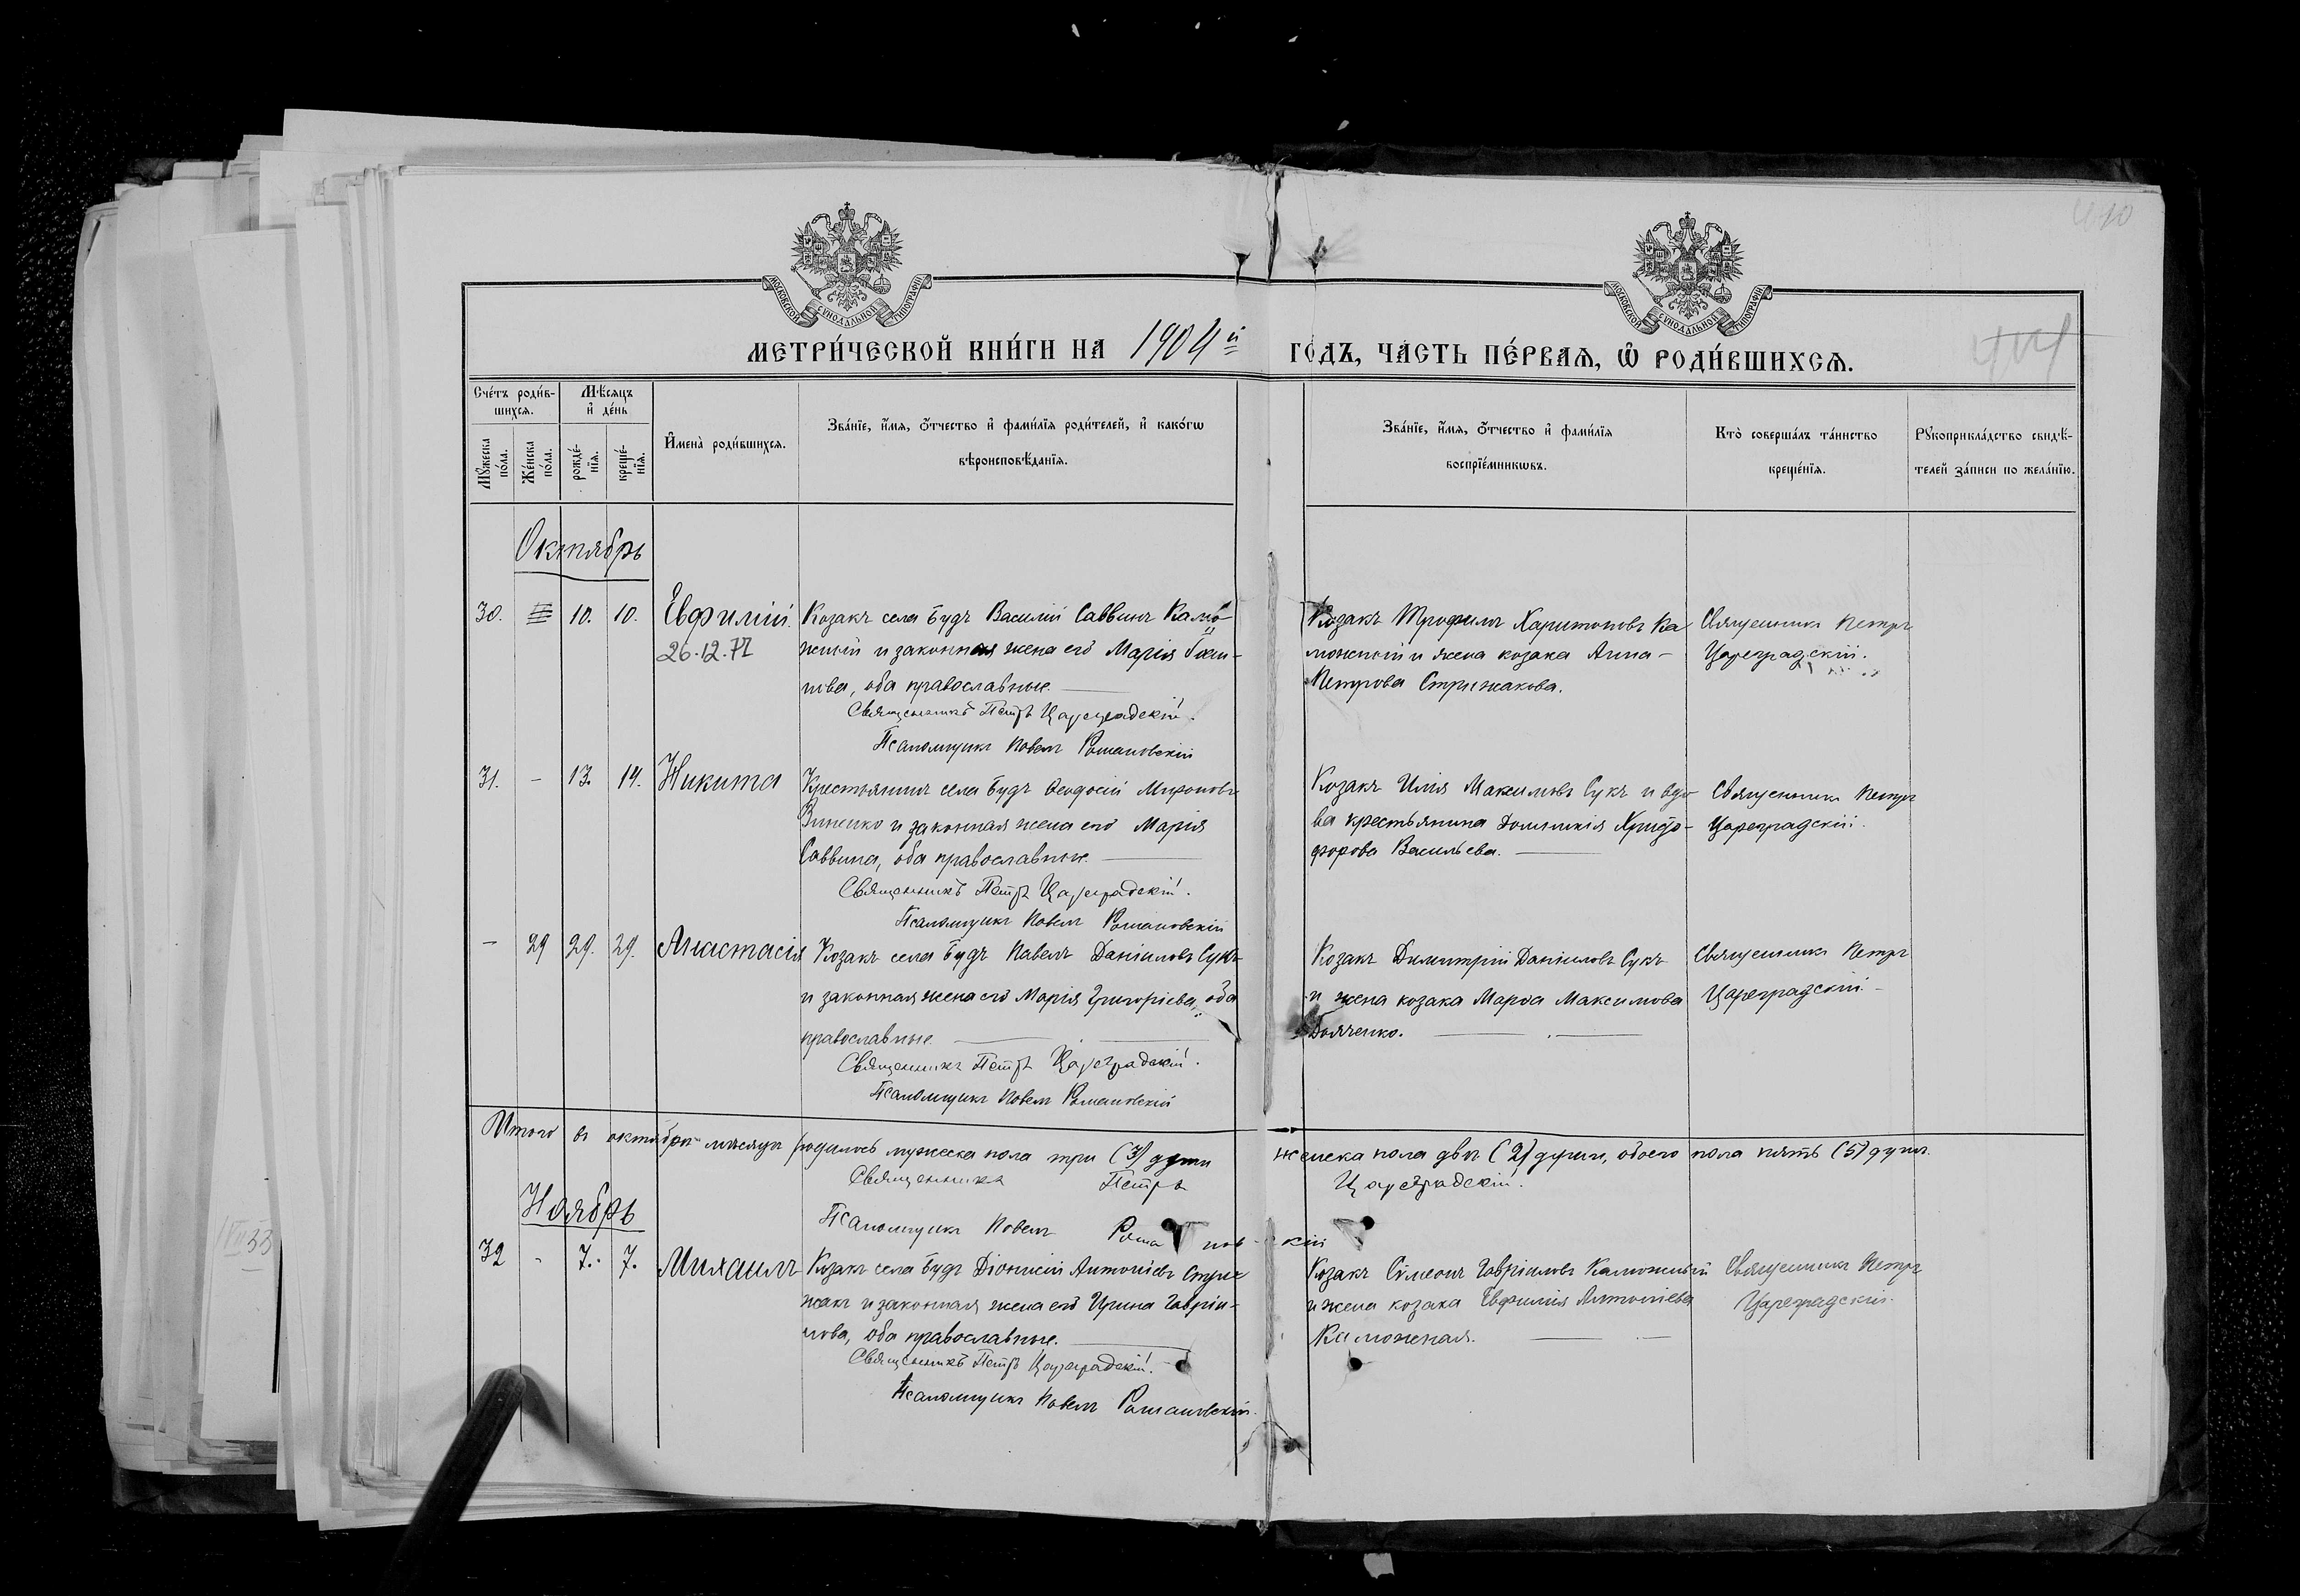 МОСКОВСКОЙ СУНОДАЛЬНОЙ ТИПОГРАФІИ
МОСКОВСКОЙ СУНОДАЛЬНОЙ ТИПОГРАФІИ
МЕТРИ́ЧЕСКОЙ КНИ́ГИ НА 1904й ГО́ДЪ, ЧА́СТЬ ПЕ́РВАѦ, Ѡ҆ РОДИ́ВШИХСѦ.
410
Сче́тъ роди́в-
шихсѧ.
Мѣ́сѧцъ
и҆ де́нь
Мꙋ́жеска по́ла.
Же́нска по́ла.
рожде́-нїѧ.
креще́-нїѧ.
И҆мена̀ роди́вшихсѧ.
Зва́нїе, и҆́мѧ, ѻ҆́тчество и҆ фами́лїѧ роди́телей, и҆ како́гѡ
вѣроисповѣ́данїѧ.
Зва́нїе, и҆́мѧ, ѻ҆́тчество и҆ фами́лїѧ
воспрїе́мникѡвъ.
Кто̀ соверша́лъ та́инство
креще́нїѧ.
Рꙋкоприкла́дство свидѣ́-
телей за́писи по жела́нїю.
Октябрь
30. 10. 10. Евфимій. Козакъ села Будъ Василій Саввинъ Камо-
26.12.77 жный и законная жена его Марія
това, оба православные.
Священникъ Петръ Цареградскій.
Псаломщикъ Павелъ Романовскій
Козакъ Трофимъ Харитоновъ Ка-
можный и жена козака Анна
Петрова Стрижакова.
Священникъ Петръ
Цареградскій.
31. - 13. 14. Никита Крестьянинъ села Будъ Ѳеодосій Мироновъ
Зиненко и законная жена его Марія
Саввина, оба православные.
Священникъ Петръ Цареградскій.
Псаломщикъ Павелъ Романовскій
Козакъ Илія Максимовъ Сукъ и вдо-
ва крестьянина Домникія Христо-
форова Васильева.
Священникъ Петръ
Цареградскій.
- 29 29. 29. Анастасія Козакъ села Будъ Павелъ Даніиловъ Сукъ
и законная жена его Марія Григоріева, оба
православные.
Священникъ Петръ Цареградскій.
Псаломщикъ Павелъ Романовскій
Козакъ Димитрій Даніиловъ Сукъ
и жена козака Марѳа Максимова
Дяченко.
Священникъ Петръ
Цареградскій
Итого въ октябрѣ мѣсяцѣ родилось мужеска пола три (3) души женска пола двѣ (2) души, обоего пола пять (5) душъ.
Священникъ Петръ Цареградскій.
Псаломщикъ Павелъ Романовскій
Ноябрь
32 - 7. 7. Михаилъ Козакъ села Будъ Діонисій Антоніевъ Стри-
жакъ и законная жена его Ирина Гавріи-
лова, оба православные.
Священникъ Петръ Цареградскій.
Псаломщикъ Павелъ Романовскій.
Козакъ Сѵмеонъ Гавріиловъ Каможный
и жена козака Евфимія Антоніева
Каможная.
Священникъ Петръ
Цареградскій.